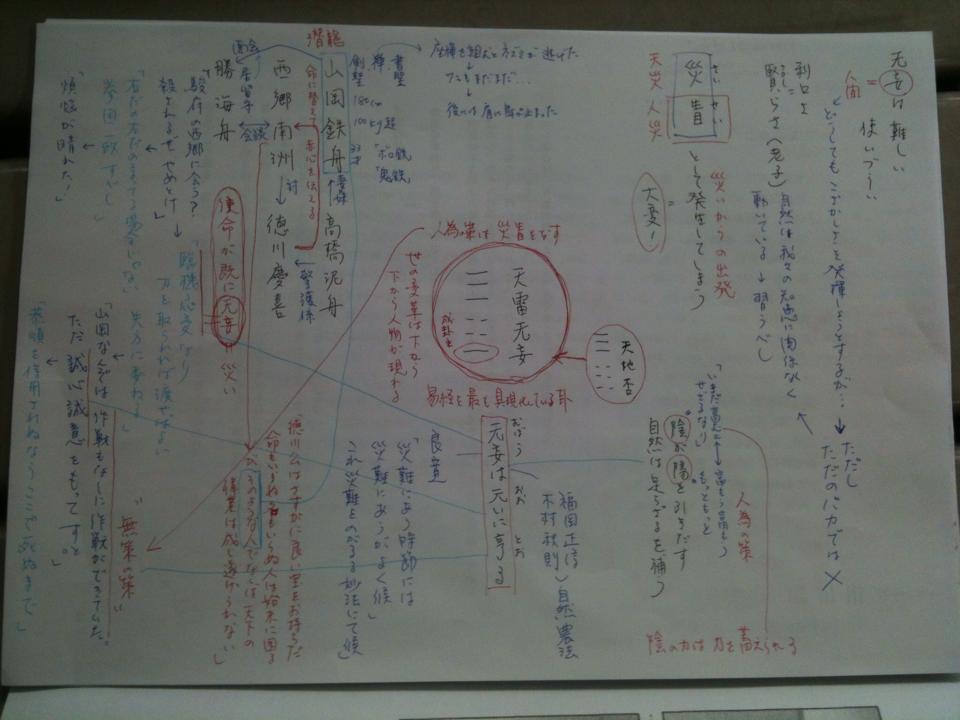 无妄は難しい
使いづらい
人間=
どうしてもこざかしさを発揮しようとするが…
→ただし
ただのバカでは×
利口さ
賢らさ(老子)
自然は我々の知恵に関係なく
動いている→習うべし
さい せい
災眚
天災 人災
として発生してしまう
災いからの出発
=
大変!
「いまだ
せざるなり」
もっともっと
陰が陽を引きだす
自然は足らざるを補う
人為の策
陰の力は力を蓄えられる
座禅を組んだら
後には肩に鳥が止まった
人為の策は災眚をなす
天雷无妄
成卦主
天地否
易経を最も具現化している卦
世の変革は下から
下から人物が現れる
おぼう おお とお
无妄は元いに亨る
福岡正信
木村秋則
自然農法
良寛
「災難にあう時節には
災難にあうがよく候」
これ災難をのがるる妙法にて候」
潜龍
書聖
禅
剣聖
180cm
100kg超
「ボロ鉄」
「鬼鉄」
山岡鉄舟
高橋泥舟
命に替えて
赤心を伝える
西郷南洲
対
→徳川慶喜
警護係
面会
会談
勝海舟
使命が既に无妄
災い
「駿府の西郷に会う?
殺されるぞ やめとけ」
「臨機応変なり」
刀を取られれば渡せばよい
先方に委ねる」
挙国一致すべし
煩悩が晴れた!
「徳川公はさすがに良い宝をお持ちだ
命もいらぬ 名もいらぬ人は始末に困る
が、そのような人でなくては天下の
偉業は成し遂げられない」
"無策の策"
「山岡なんぞは作戦もなしに作戦ができてんだ。
ただ誠心誠意をもってすと。」
恭順を信用されねならここで死ぬまで」